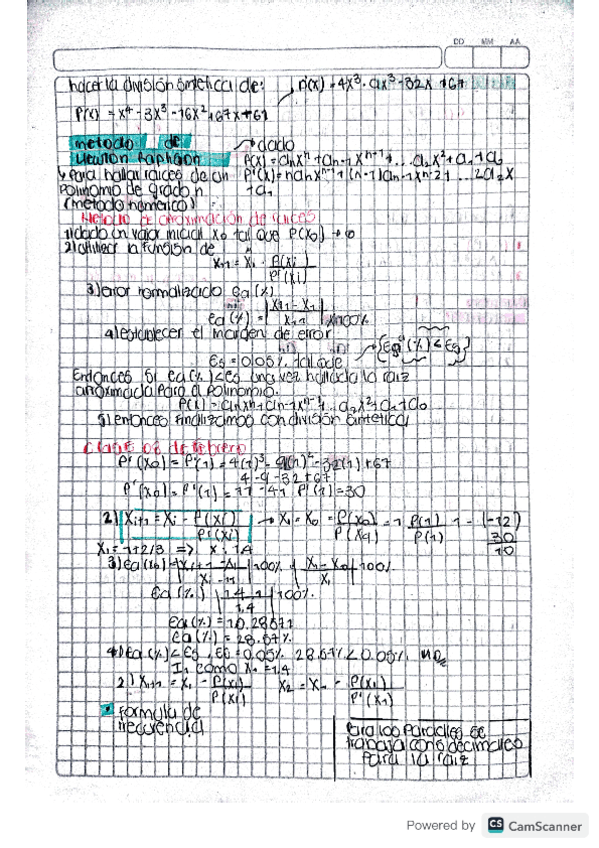 DD MM AA
hacer la división sintetica de: P(x) = 4x³ - 9x² - 32x + 67
P(x) = x⁴ - 3x³ - 16x² + 67x + 61
metodo de
Newton Raphson
dado
P(x) = anxⁿ + an-1xⁿ⁻¹ + ... a2x² + a1 + a0
↳ Para hallar raices de un P'(x) = nanxⁿ⁻¹ + (n-1)an-1xⁿ⁻² + ... 2a2x
Polinomio de grado n + a1
(metodo numerico)
Metodo de aproximación de raices
1) dado un valor inicial x0 tal que P(x0) → 0
2) utilizar la función de
Xi+1 = Xi - P(xi) / P'(xi)
3) error normalizado Ea (%)
Ea (%) = | Xi+1 - Xi / Xi+1 | x100%
4) establecer el margen de error
Es = 0.05% tal que {Ea (%) < Es}
Entonces si Ea (%) < Es una vez hallada la raiz
aproximada para el polinomio.
P(x) = anxⁿ + an-1xⁿ⁻¹ + ... a2x² + a1 + a0
5) entonces finalizamos con división sintetica
Clase 08 de febrero
P'(x0) = P'(1) = 4(1)³ - 9(1)² - 32(1) + 67
4 - 9 - 32 + 67
P'(x0) = P'(1) = 71 - 41 P'(1) = 30
2) Xi+1 = Xi - P(xi) / P'(xi) → X1 = X0 - P(x0) / P'(x0) = 1 P(1) / P(1) 1 - (-12) / 30
10
X1 = 1 + 2/3 => x = 1.4
3) Ea (x0) = | Xi+1 - Xi / Xi+1 | 100% | X1 - X0 / X1 | 100%
Ea (%) | 1.4 - 1 / 1.4 | 100%
Ea (%) = 0.28571
Ea (%) = 28.57%
4) Ea (%) < Es, Es = 0.05% 28.57% < 0.05% No
I1 como X1 = 1.4
2) Xi+1 = Xi - P(xi) / P'(xi) X2 = X1 - P(x1) / P'(x1)
formula de
recurrencia
Para los Parciales se
trabaja con 5 decimales
Para la raiz
Powered by CS CamScanner